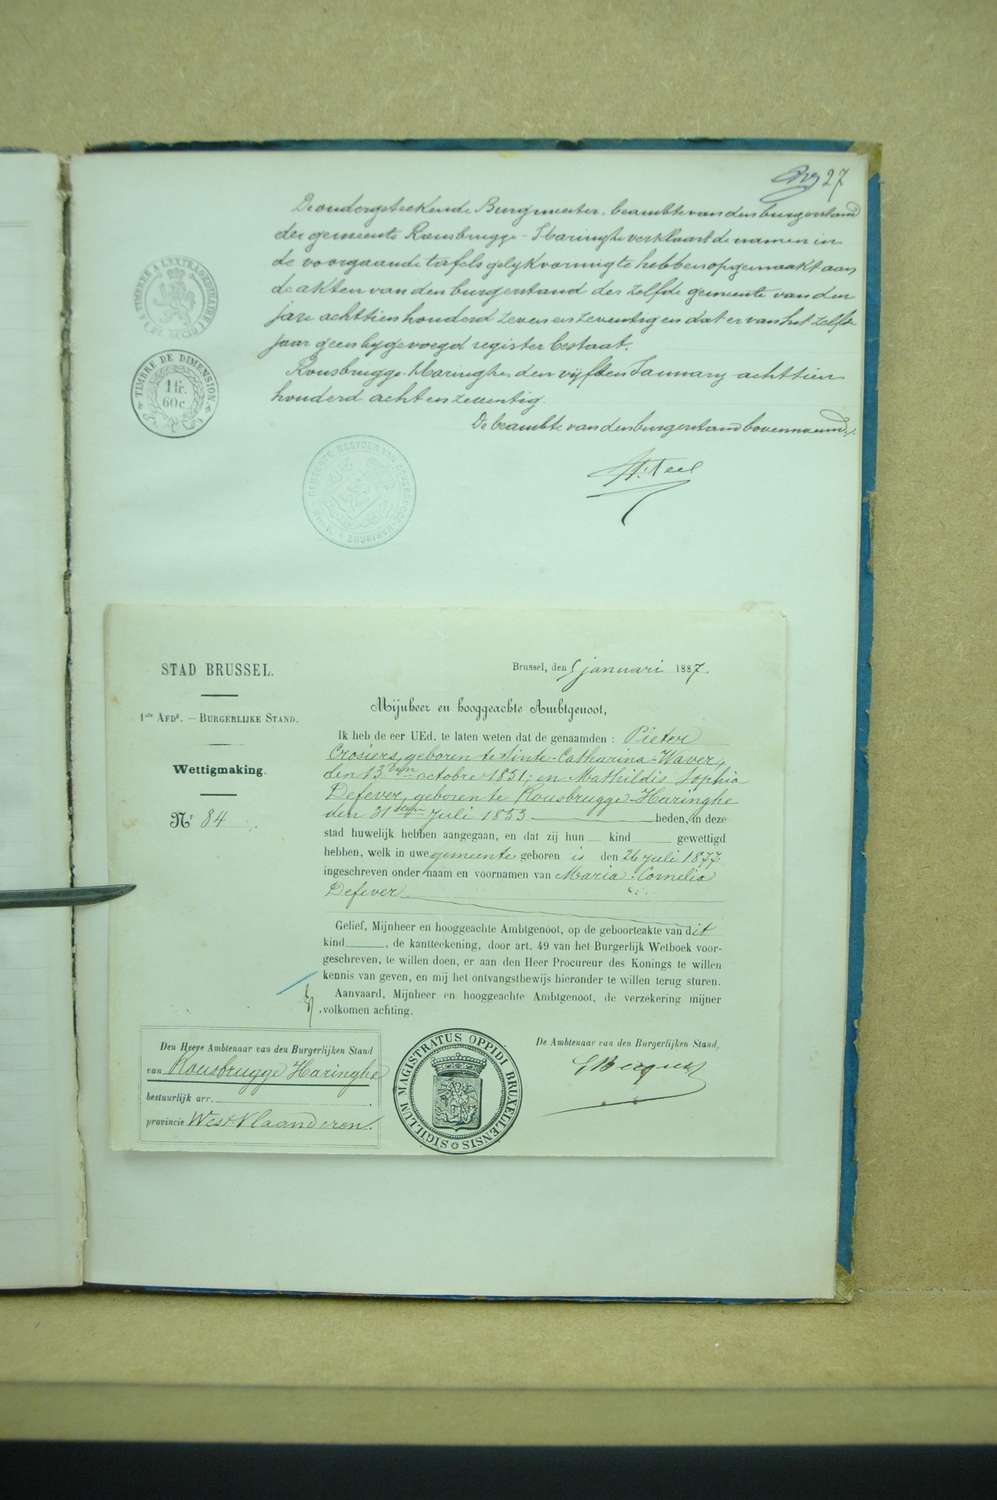 27
De ondergeteekende Burgmeester, beambte van den burgerstand
der gemeente Rousbrugge-Haringhe verklaart de namen in
de voorgaande tafels gelykvormig te hebben opgemaakt aan
de akten van den burgerstand der zelfde gemeente van den
jare achttien honderd zeven en zeventig en dat er van het zelfde
jaar geen bygevoegd register bestaat.
Rousbrugge-Haringhe, den vyfden January achttien
honderd acht en zeventig.
De beambte van den burgerstand bovennoemd,
TIMBRE DE DIMENSION
1 fr.
60 c.
STAD BRUSSEL.
1ste AFDg. — BURGERLIJKE STAND.
Wettigmaking.
Nr 84
Brussel, den 5 januari 1887.
Mijnheer en hooggeachte Ambtgenoot,
Ik heb de eer UEd. te laten weten dat de genaamden : Pieter
Crosiers, geboren te Sinte-Catharina-Waver,
den 13den octobre 1851; en Mathildis Sophia
Defever, geboren te Rousbrugge-Haringhe
den 31sten Juli 1853 heden, in deze
stad huwelijk hebben aangegaan, en dat zij hun kind gewettigd
hebben, welk in uwe gemeente geboren is den 26 juli 1877
ingeschreven onder naam en voornamen van Maria-Cornelia
Defever
Gelief, Mijnheer en hooggeachte Ambtgenoot, op de geboorteakte van dit
kind , de kantteekening, door art. 49 van het Burgerlijk Wetboek voor-
geschreven, te willen doen, er aan den Heer Procureur des Konings te willen
kennis van geven, en mij het ontvangstbewijs hieronder te willen terug sturen.
Aanvaard, Mijnheer en hooggeachte Ambtgenoot, de verzekering mijner
volkomen achting.
De Ambtenaar van den Burgerlijken Stand,
Den Heere Ambtenaar van den Burgerlijken Stand
van Rousbrugge Haringhe
bestuurlijk arr.
provincie West-Vlaanderen.
SIGILLUM MAGISTRATUS OPPIDI BRUXELLENSIS